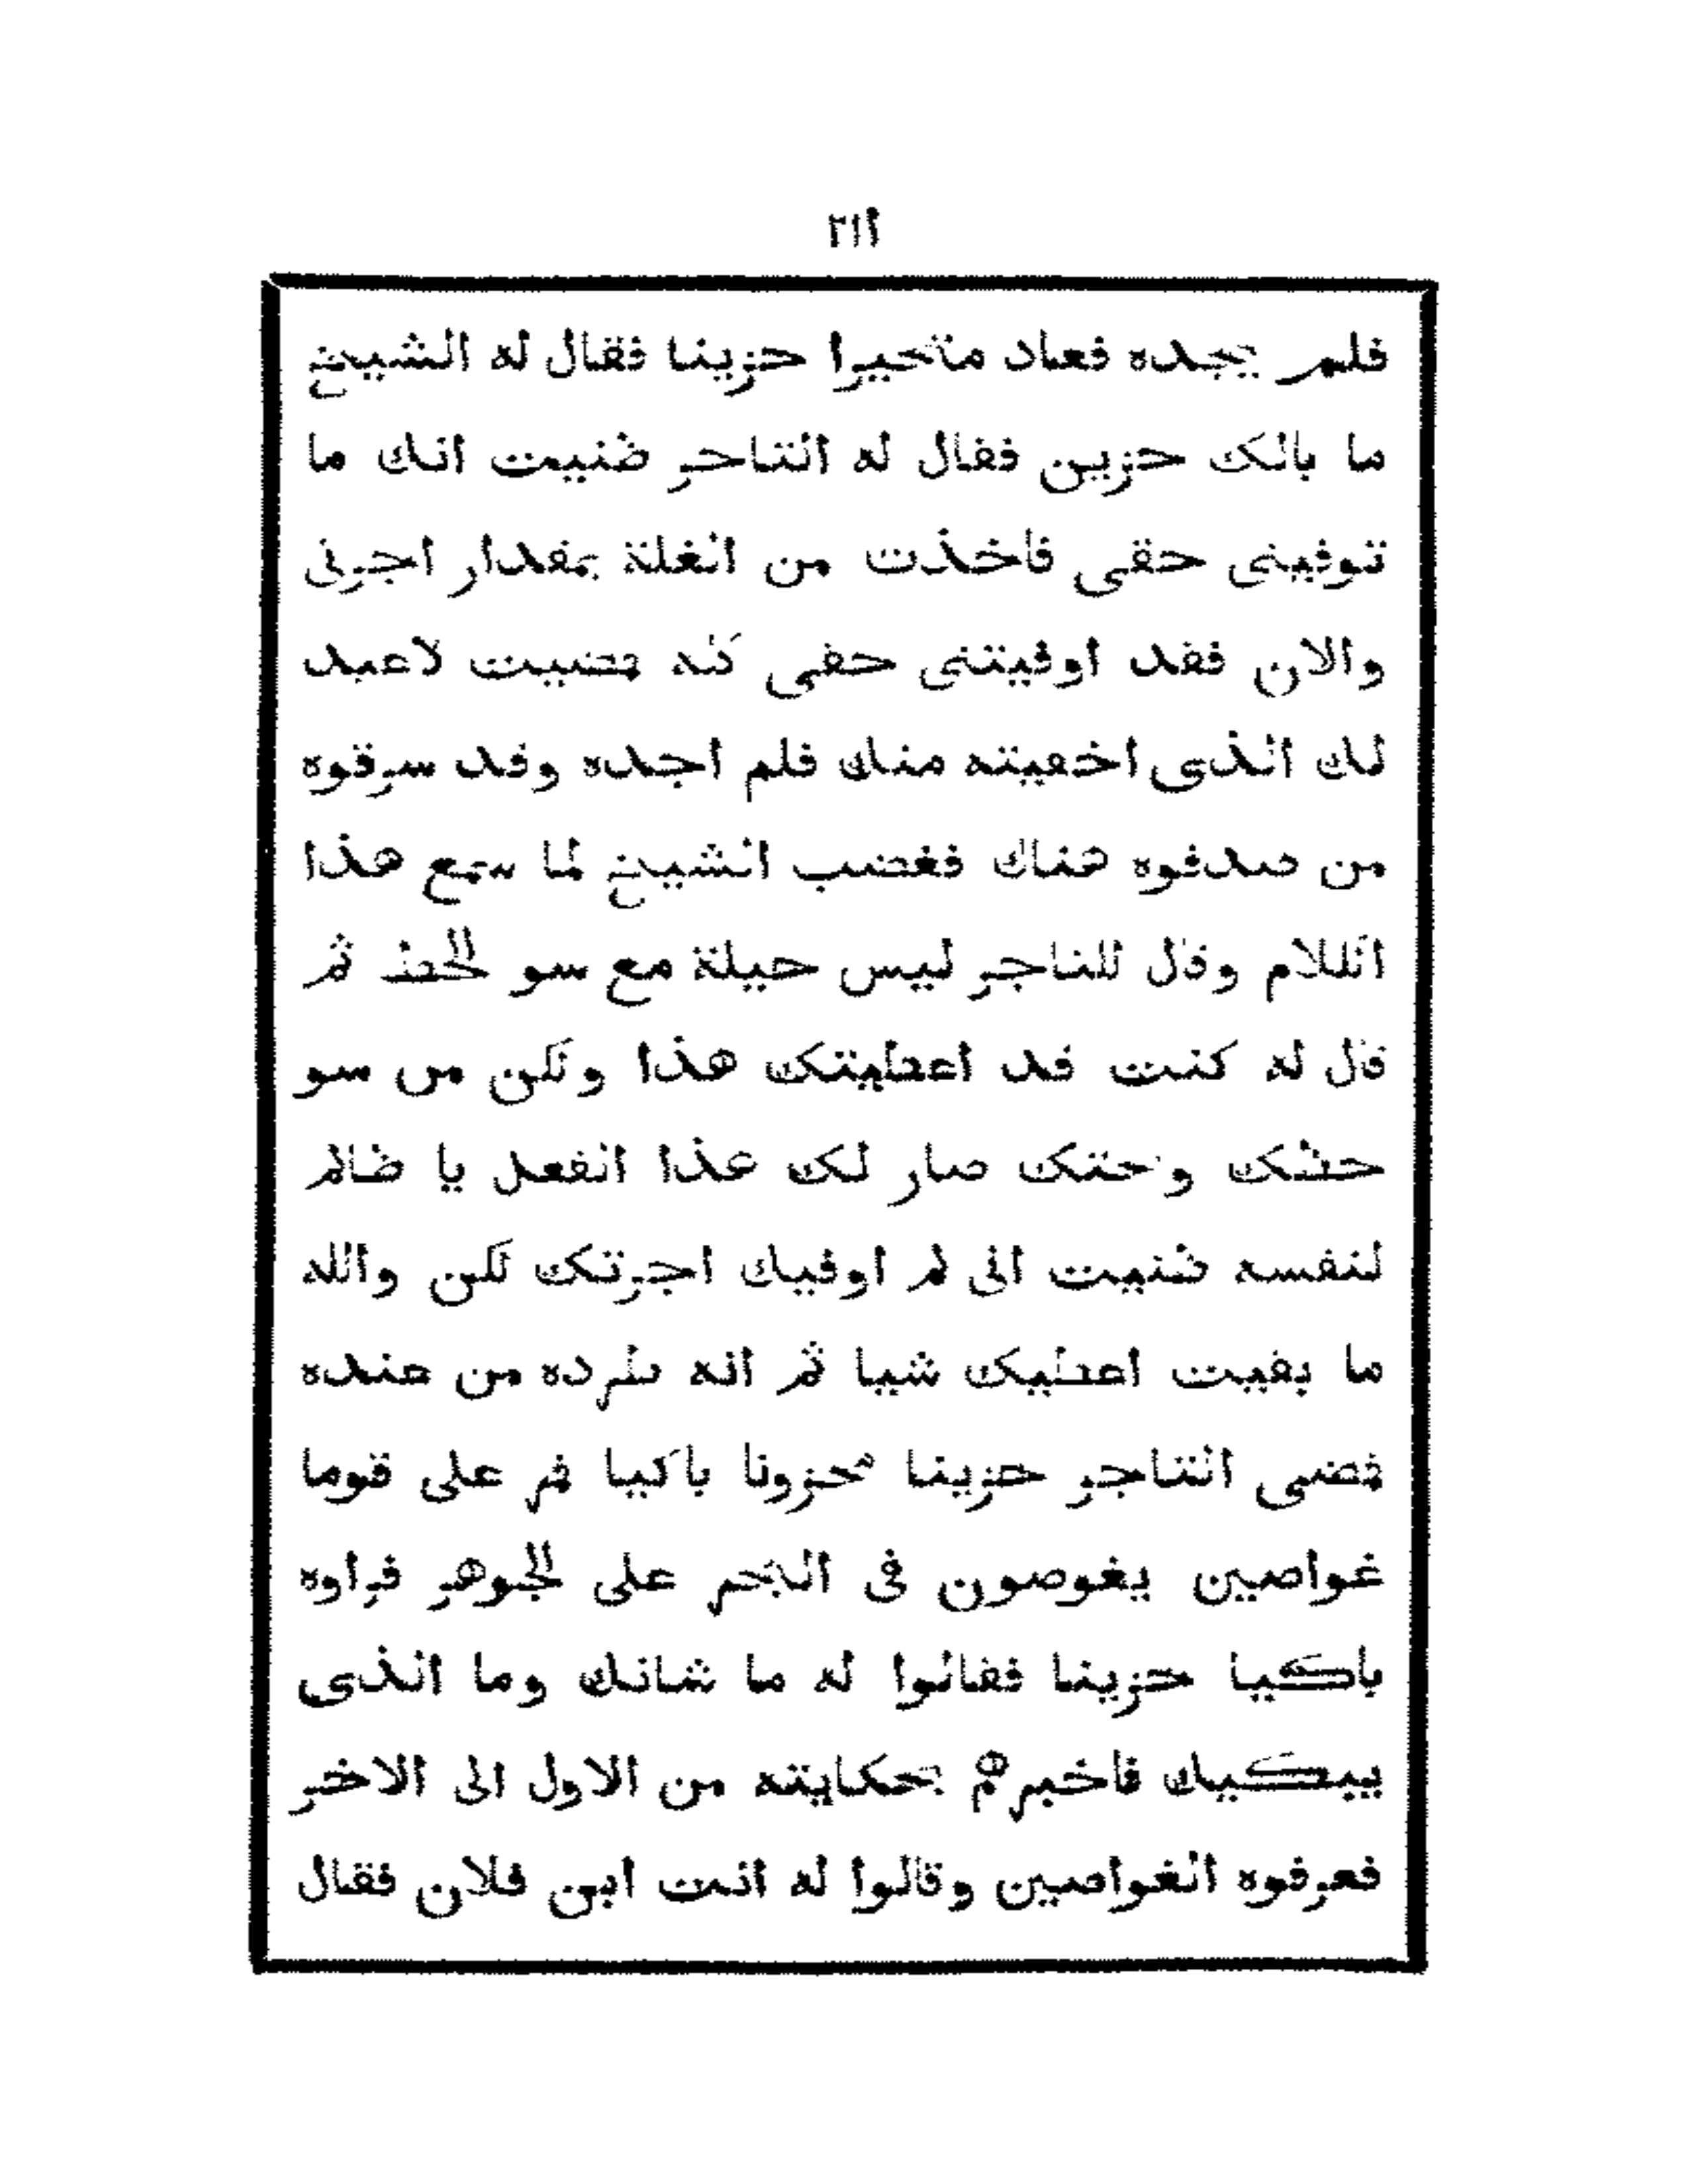 ٢١٢
فلم يجده فعاد متحيرا حزينا فقال له الشيخ
ما بالك حزين فقال له التاجر ظنيت انك ما
توفينى حقى فاخذت من الغلة بمقدار اجرتى
والان فقد اوفيتنى حقى كله فضيت لاعيد
لك الذى اخفيته منك فلم اجده وقد سرقوه
من صدفوه هناك فغضب الشيخ لما سمع هذا
الكلام وقال للتاجر ليس حيلة مع سو الحظ ثم
قال له كنت قد اعطيتك هذا ولكن من سو
حظك وبختك صار لك هذا الفعل يا ظالم
لنفسه ظنيت انى لم اوفيك اجرتك لكن والله
ما بقيت اعطيك شيا ثم انه طرده من عنده
فضى التاجر حزينا محزونا باكيا فر على قوما
غواصين يغوصون فى البحر على الجوهر فراوه
باكيا حزينا فقالوا له ما شانك وما الذى
يبكيك فاخبرهم بحكايته من الاول الى الاخر
فعرفوه الغواصين وقالوا له انت ابن فلان فقال